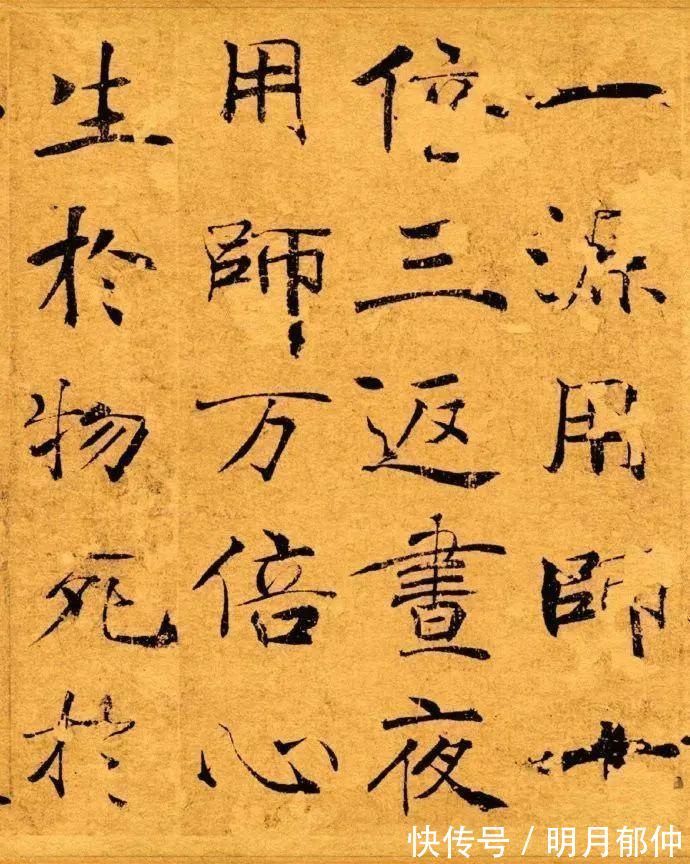 一源用師十
倍三返晝夜
用師万倍心
生於物死於
快传号 / 明月郁仲